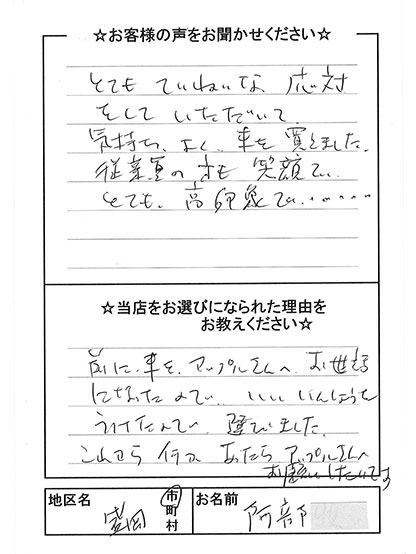 ☆お客様の声をお聞かせください☆
とても ていねいな 応対
をして いただいて、
気持ち、よく、車を 買えました。
従業員の 方も 笑顔で、
とても、高印象で、........
☆当店をお選びになられた理由を
お教えください☆
前に、車を、アップルさんへ、お世話
になったので、いい いんしょうを
うけたので、選びました。
これから 何か あったら アップルさんへ
お願いしたいです
地区名 盛岡 市 町 村 お名前 阿部